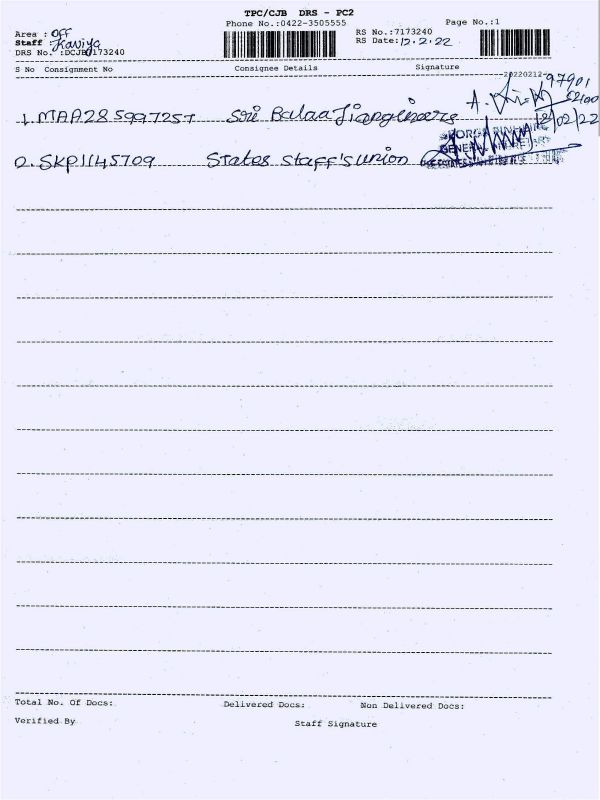 TPC/CJB DRS - PC2
Phone No.:0422-3505555
Page No.:1
Area : Off
Staff : Kaviya
DRS No. :DCJB07173240
RS No.:7173240
RS Date: 12.2.22
S No Consignment No Consignee Details Signature
20220212-
97901
12/02/22
1. MAA285997257 Sri Balaa
2. SKP1145709 States staff's union
GENERAL SECRETARY
Total No. Of Docs: Delivered Docs: Non Delivered Docs:
Verified By Staff Signature